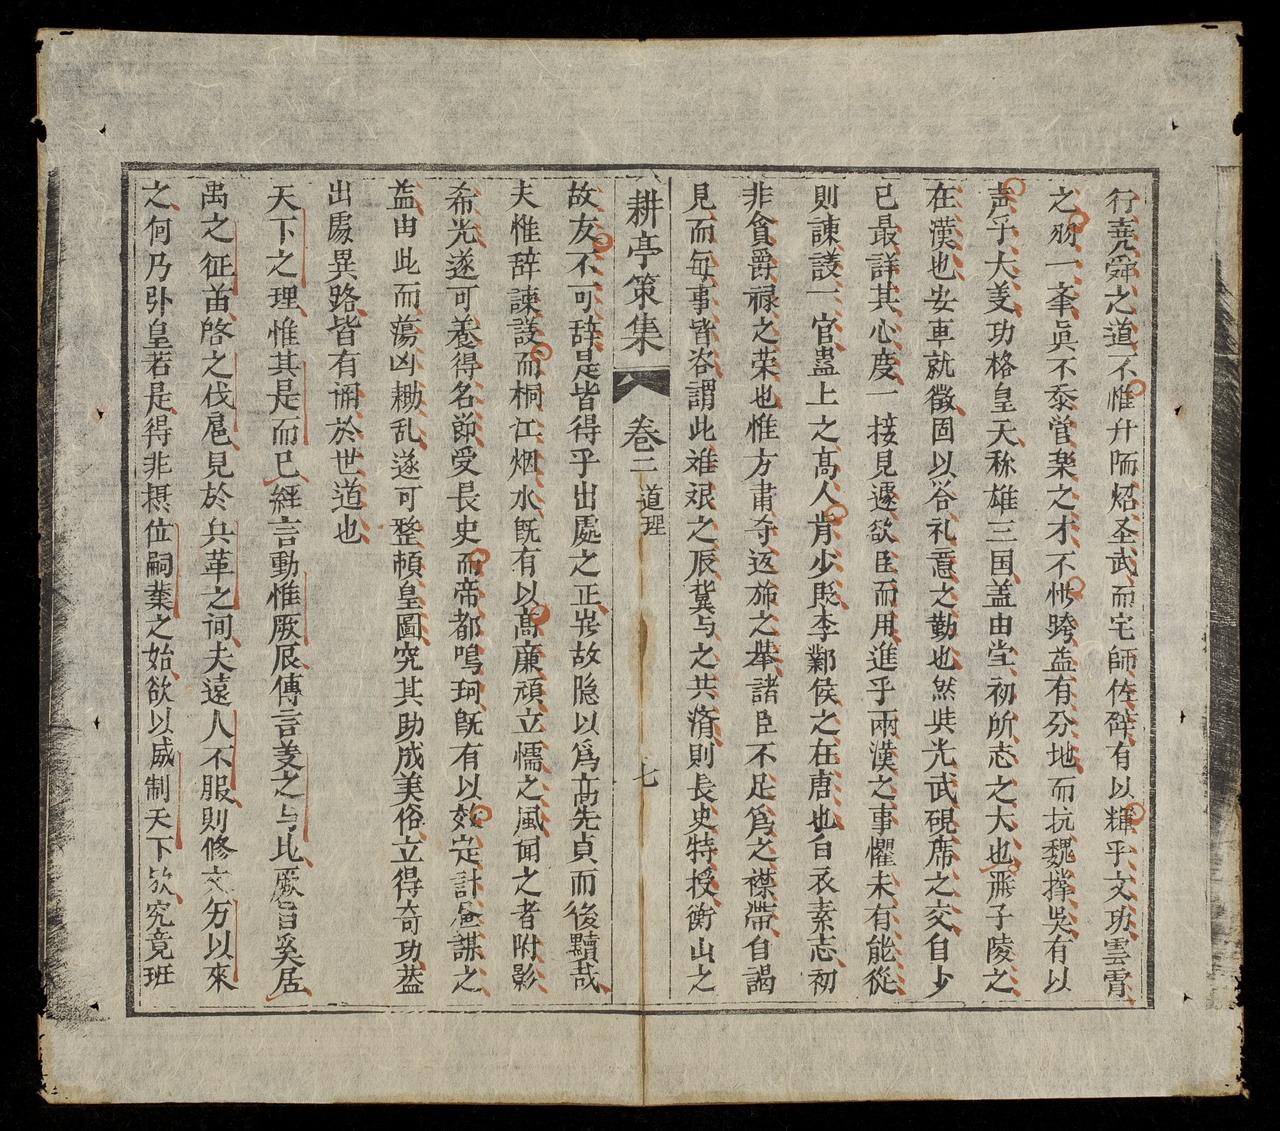 行堯舜之道不惟升陑炤圣武而宅師佐辟有以輝乎文功雲霄
之羽一挙眞不忝管楽之才不惟跨益有分地而抗魏撑吳有以
乎大义功格皇天称雄三国盖由堂初所志之大也飛子陵之
在漢也安車就徵固以谷礼意之勤也然与光武硯席之交自少
已最詳其心度一接見遽欲臣而用進乎兩漢之事懼未有能從
則諫議一官蠱上之髙人肯少貶李鄴侯之在唐也白衣素志初
非貪爵禄之荣也惟方肅寺返斾之举諸臣不足爲之襟帶自謁
見而每事皆咨謂此难艰之辰冀与之共濟則長史特授衡山之
耕亭策集
卷二
道理
七
故友不可辞是皆得乎出處之正故隐以爲高先貞而後黷哉
夫惟辞諫議而桐江烟水既有以髙廉頑立懦之風闻之者附影
希光遂可養得名節受長史而帝都鳴珂既有以效定計密謀之
益由此而蕩凶耡乱遂可整頓皇圖究其助成美俗立得奇功益
出處異路皆有補於世道也
天下之理惟其是而已經言動惟厥辰傳言义之与比厥旨奚居
禹之征苗啓之伐扈見於兵革之间夫遠人不服則修文労以來
之何乃引皇若是得非摂位嗣業之始欲以威制天下欤究竟班